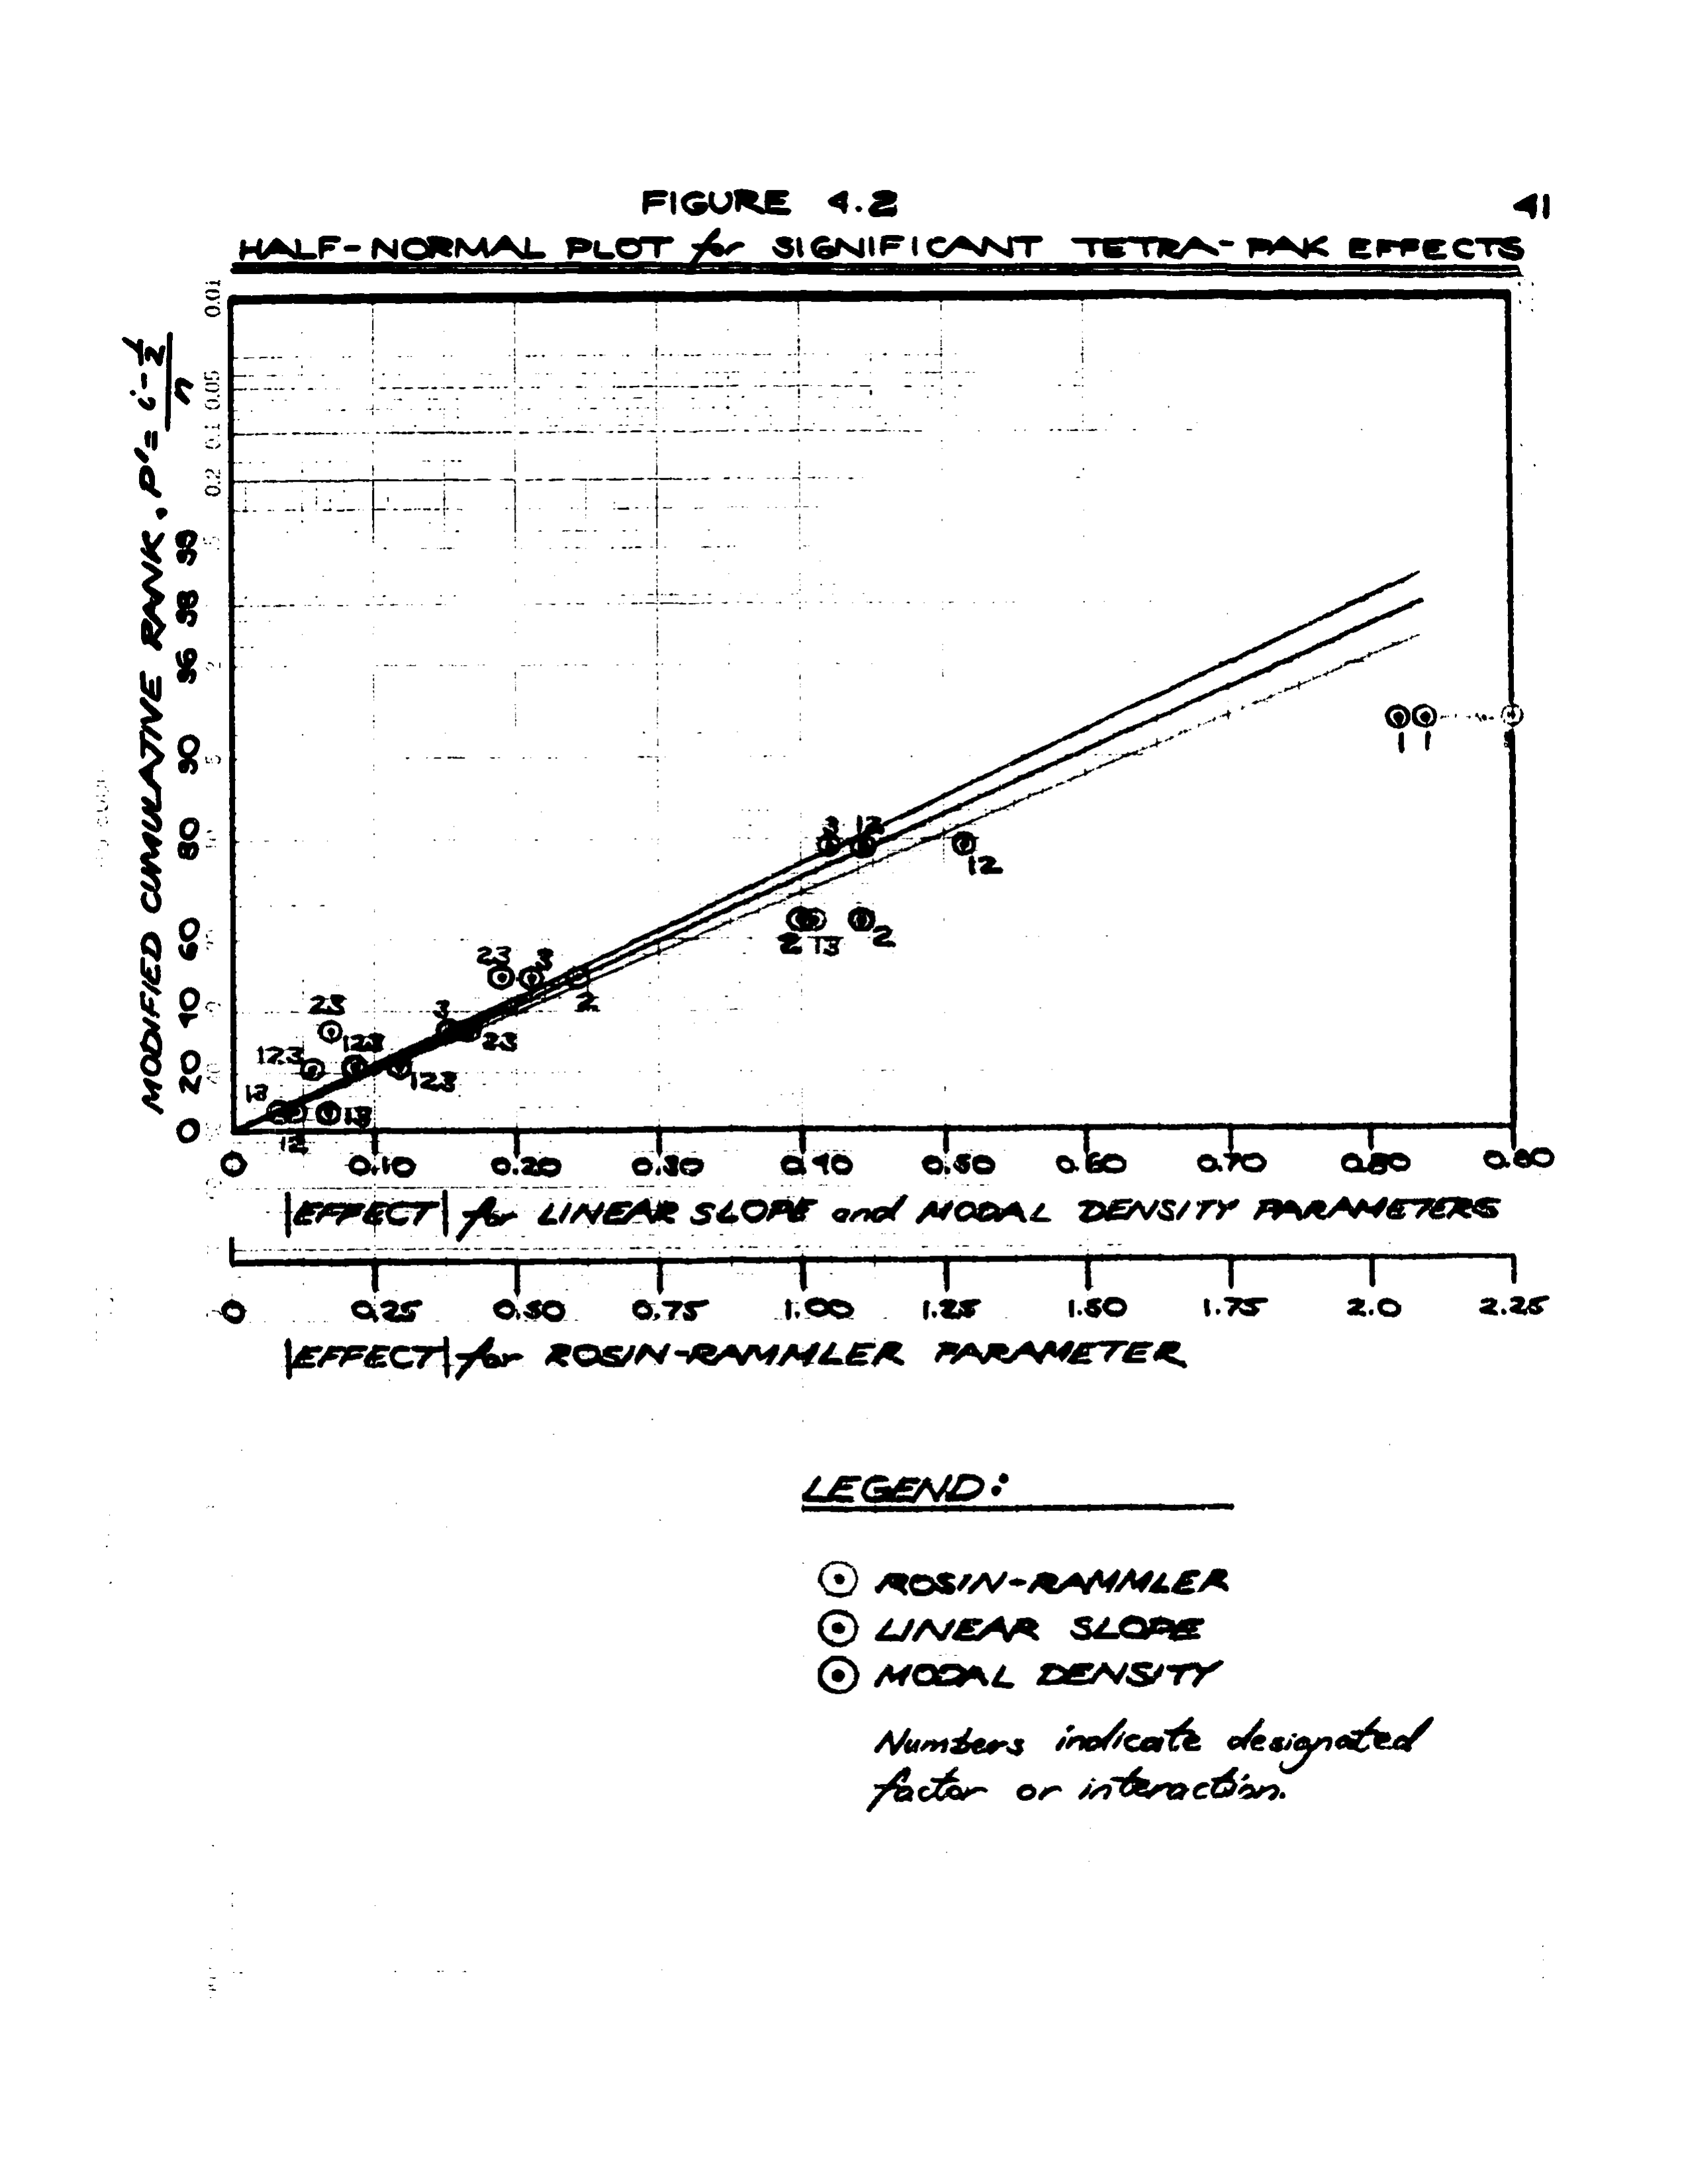 FIGURE 4.2
41
HALF-NORMAL PLOT for SIGNIFICANT TETRA-PAK EFFECTS
MODIFIED CUMULATIVE RANK, P' = i-½ / n
0.01
0.05
0.1
0.2
99
98
96
90
80
60
40
20
0
1 1
3 12
12
2 13 2
23 3
2
23
3
23
123 123
123
13
13
12
0 0.10 0.20 0.30 0.40 0.50 0.60 0.70 0.80 0.90
|EFFECT| for LINEAR SLOPE and MODAL DENSITY PARAMETERS
0 0.25 0.50 0.75 1.00 1.25 1.50 1.75 2.0 2.25
|EFFECT| for ROSIN-RAMMLER PARAMETER
LEGEND:
ROSIN-RAMMLER
LINEAR SLOPE
MODAL DENSITY
Numbers indicate designated
factor or interaction.